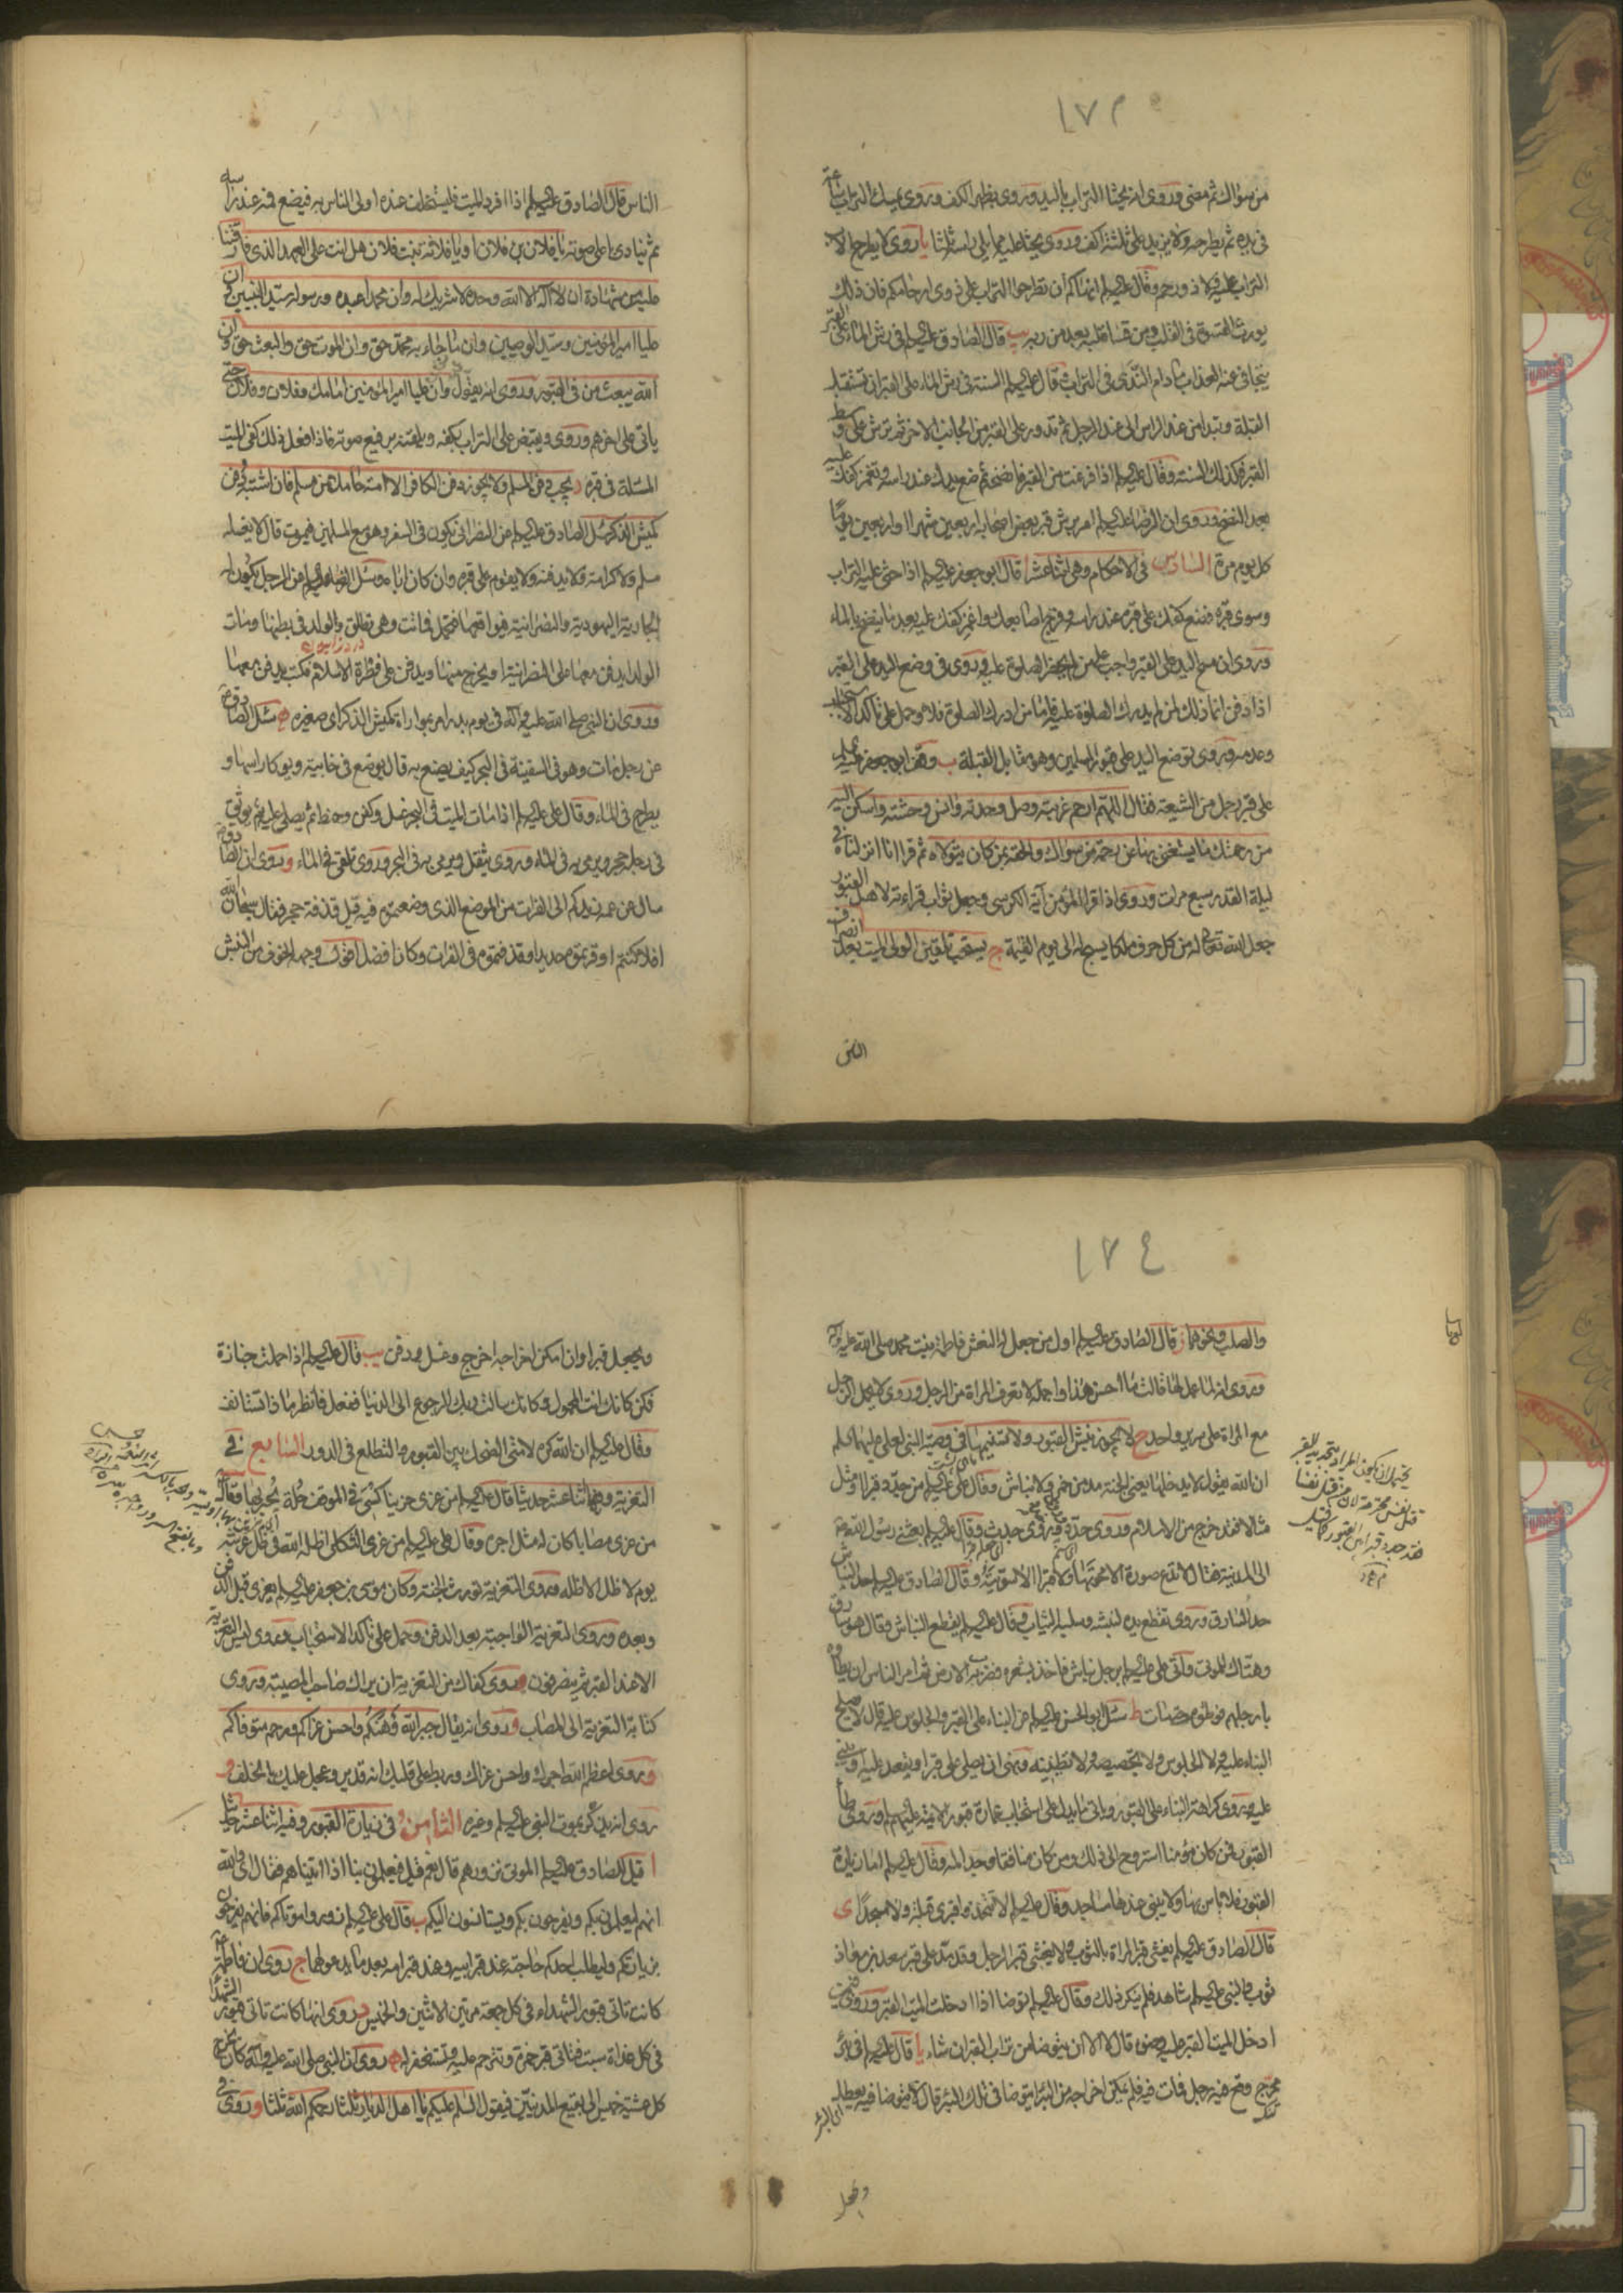 ١٧٣
من سواك ثم مضى وروى انه يحثا التراب باليد وروى بظهر الكف وروى يمسك التراب ساعة
فى يده ثم يطرحه ولا يزيد على ثلثة اكف وروى يحثا عليه مما يلى راسه ثلثا يا روى لا يطرح الا
التراب عليه ذو رحم وقال عليه السلم انهاكم ان تطرحوا التراب على ذوى ارحامكم فان ذلك
يورث القسوة فى القلب ومن قسا قلبه بعد من ربه يب قال الصادق عليه السلم فى رش الماء على القبر
يتجافى عنه العذاب ما دام الندى فى التراب وقال عليه السلم السنة فى رش الماء على القبر ان تستقبل
القبلة وتبدا من عند الراس الى عند الرجل ثم تدور على القبر من الجانب الاخر ثم ترش على وسط
القبر فكذلك السنة وقال عليه السلم اذا فرغت من القبر فانضحه ثم ضع يدك عند راسه وتغمز كفك عليه
بعد النضح وروى ان الرضا عليه السلم امر برش قبر بعض اصحابه اربعين شهرا او اربعين يوما
كل يوم مرة السادس فى الاحكام وهى اثنا عشر ا قال ابو جعفر عليه السلم اذا حثى عليه التراب
وسوى قبره فضع كفك على قبره عند راسه وفرج اصابعك واغمز كفك عليه بعد ما ينضح بالماء
وروى ان مسح اليد على القبر واجب على من لم يحضر الصلوة عليه وروى فى وضع اليد على القبر
اذا دفن انما ذلك لمن لم يدرك الصلوة عليه فاما من ادرك الصلوة فلا وحمل على تاكد الاستحباب
وعدمه وروى توضع اليد على قبور المسلمين وهو مقابل القبلة ب وقف ابو جعفر عليه السلم
على قبر رجل من الشيعة فقال اللهم ارحم غربته وصل وحدته وانس وحشته واسكن اليه
من رحمتك ما يستغنى بها عن رحمة من سواك والحقه بمن كان يتولاه ثم قرا انا انزلناه فى
ليلة القدر سبع مرات وروى اذا قرا المؤمن آية الكرسى وجعل ثواب قراءته لاهل القبور
جعل الله تعالى له من كل حرف ملكا يسبح له الى يوم القيمة ج يستحب تلقين الولى الميت بعد انصراف
الناس قال الصادق عليه السلم اذا افرد الميت فليتخلف عنده اولى الناس به فيضع فمه عند راسه
ثم ينادى باعلى صوته يا فلان بن فلان او يا فلانة بنت فلان هل انت على العهد الذى فارقتنا
عليه من شهادة ان لا اله الا الله وحده لا شريك له وان محمدا عبده ورسوله سيد النبيين وان
عليا امير المؤمنين وسيد الوصيين وان ما جاء به محمد حق وان الموت حق والبعث حق وان
الله يبعث من فى القبور وروى انه يقول وان عليا امير المؤمنين امامك وفلان وفلان حتى
ياتى على اخرهم وروى ويقبض على التراب بكفه ويلقنه برفيع صوته فاذا فعل ذلك كفى الميت
المسئلة فى قبره د يجب دفن المسلم ولا يجوز دفن الكافر الا امة حامل من مسلم فان اشتبه دفن
كميش الذكر سئل الصادق عليه السلم عن النصرانى يكون فى السفر وهو مع المسلمين فيموت قال لا يغسله
مسلم ولا كرامة ولا يدفنه ولا يقوم على قبره وان كان اباه وسئل الرضا عليه السلم عن الرجل يكون له
الجارية اليهودية والنصرانية فيواقعها فتحمل فماتت وهى تطلق والولد فى بطنها ومات
الولد ايدفن معها على النصرانية او يخرج منها ويدفن على فطرة الاسلام فكتب يدفن معها
وروى ان النبى صلى الله عليه وآله فى يوم بدر امر بمواراة كميش الذكر اى صغيره ه سئل الصادق
عن رجل مات وهو فى السفينة فى البحر كيف يصنع به قال يوضع فى خابية ويوكا راسها و
يطرح فى الماء وقال على عليه السلم اذا مات الميت فى البحر غسل وكفن وحنط ثم يصلى عليه ثم يوثق
فى رجله حجر ويرمى به فى الماء وروى يثقل ويرمى به فى البحر وروى تلقى فى الماء و روى ان الصادق
سال عن عمه زيد كم الى الفرات من الموضع الذى وضعتموه فيه قيل قذفة حجر فقال سبحان الله
افلا كنتم اوقرتموه حديدا وقذفتموه فى الفرات وكان افضل وجمله الخوف من النبش
التى
١٧٤
والصلب ونحوهما ز قال الصادق عليه السلم اول من جعل له النعش فاطمة بنت محمد صلى الله عليه وآله
وروى انه لما عمل لها قالت ما احسن هذا واجمله لا تعرف المراة من الرجل وروى لا يحمل الرجل
مع المراة على سرير واحد ح لا يجوز نبش القبور ولا تسنيمها فى وصية النبى لعلى عليهما السلم
ان الله يقول لا يدخلها يعنى الجنة مدمن خمر ولا نباش وقال على عليه السلم من جدد قبرا او مثل
مثالا فقد خرج من الاسلام وروى حدد وفيه وروى حدث وقال عليه السلم بعثنى رسول الله
الى المدينة فقال لا تدع صورة الا محوتها ولا قبرا الا سويته وقال الصادق عليه السلم حد النباش
حد السارق وروى تقطع يده لنبشه وسلبه الثياب وقال عليه السلم يقطع النباش وقال هو سارق
وهتاك للموتى واتى على عليه السلم برجل نباش فاخذ بشعره فضرب به الارض ثم امر الناس ان يطاوه
بارجلهم فوطئوه حتى مات ط سئل ابو الحسن عليه السلم عن البناء على القبر والجلوس عليه قال لا يصلح
البناء عليه ولا الجلوس ولا تجصيصه ولا تطيينه ونهى ان يصلى على قبر او يقعد عليه او يبنى
عليه وروى كراهة البناء على القبور وياتى ما يدل على استحباب عمارة قبور الائمة عليهم السلم وروى طأ
القبور فمن كان مؤمنا استروح الى ذلك ومن كان منافقا وجد المه وقال عليه السلم اما زيارة
القبور فلا باس بها ولا يبنى عندها مساجد وقال عليه السلم لا تتخذوا قبرى قبلة ولا مسجدا ى
قال الصادق عليه السلم يغشى قبر المراة بالثوب ولا يغشى قبر الرجل وقد مد على قبر سعد بن معاذ
ثوب والنبى عليه السلم شاهد فلم ينكر ذلك وقال عليه السلم توضا اذا ادخلت الميت القبر وروى فيمن
ادخل الميت القبر عليه وضوء قال لا الا ان يتوضا من تراب القبر ان شاء يا قال عليه السلم فى بئر
محرج وقع فيه رجل فمات فيه فلم يمكن اخراجه من البئر ايتوضا فى تلك البئر قال لا يتوضا فيه يعطل
اى البئر
ويجعل
يحتمل ان يكون المراد بتجديد القبر
قتل نفس محترمة لان من قتل نفسا
فقد جدد قبرا من القبور كما قيل
ويجعل قبرا وان امكن اخراجه اخرج وغسل ودفن يب قال عليه السلم اذا حملت جنازة
فكن كانك انت المحمول وكانك سالت ربك الرجوع الى الدنيا ففعل فانظر ماذا تستانف
وقال عليه السلم ان الله كره لامتى الضحك بين القبور والتطلع فى الدور السابع فى
التعزية وفيها اثنا عشر حديثا قال عليه السلم من عزى حزينا كسى فى الموقف حلة يحبر بها وقال
من عزى مصابا كان له مثل اجره وقال على عليه السلم من عزى الثكلى اظله الله فى ظل عرشه
يوم لا ظل الا ظله وروى التعزية تورث الجنة وكان موسى بن جعفر عليه السلم يعزى قبل الدفن
وبعده وروى التعزية الواجبة بعد الدفن وحمل على تاكد الاستحباب وروى ليس التعزية
الا عند القبر ثم ينصرفون وروى كفاك من التعزية ان يراك صاحب المصيبة وروى
كتابة التعزية الى المصاب و روى انه يقال جبر الله وهنكم واحسن عزاكم ورحم متوفاكم
و روى اعظم الله اجرك واحسن عزاك وربط على قلبك انه قدير وعجل عليك بالخلف و
روى انه يذكر بموت النبى عليه السلم وغيره الثامن فى زيارة القبور وفيه اثنا عشر حديثا
ا قيل للصادق عليه السلم الموتى نزورهم قال نعم قيل فيعلمون بنا اذا اتيناهم فقال اى والله
انهم ليعلمون بكم ويفرحون بكم ويستانسون اليكم ب قال على عليه السلم زوروا موتاكم فانهم يفرحون
بزيارتكم وليطلب احدكم حاجته عند قبر ابيه وعند قبر امه بعد ما يدعو لهما ج روى ان فاطمة
كانت تاتى قبور الشهداء فى كل جمعة مرتين الاثنين والخميس د روى انها كانت تاتى قبور الشهداء
فى كل غداة سبت فتاتى قبر حمزة وتترحم عليه وتستغفر له ه روى ان النبى صلى الله عليه وآله كان يخرج
كل عشية خميس الى بقيع المدنيين فيقول السلم عليكم يا اهل الديار ثلثا رحمكم الله ثلثا و روى فى